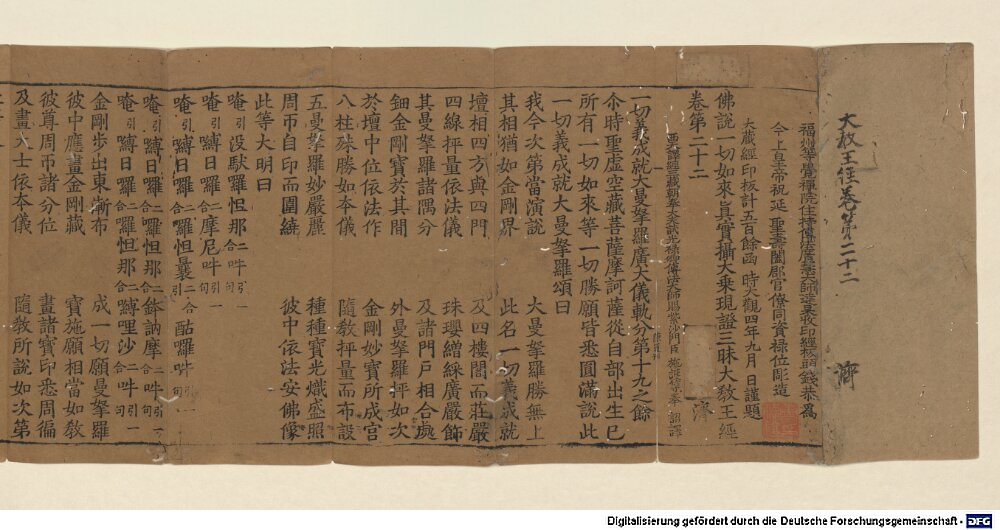 大教王經卷第二十二
濟
福州等覺禪院住持傳法慧空大師沖真於崇寧印經板頭錢恭為
今上皇帝祝延 聖壽闔郡官僚同資祿位彫造
大藏經印板計五百餘函 時大觀四年九月 日謹題
佛說一切如來真實攝大乘現證三昧大教王經
卷第二十二 濟
西天譯經三藏朝奉大夫試光祿卿傳法大師賜紫沙門臣 施護等奉 詔譯
一切義成就大曼拏羅廣大儀軌分第十九之餘
尒時聖虛空藏菩薩摩訶薩從自部出生已
所有一切如來等一切勝願皆悉圓滿說此
一切義成就大曼拏羅頌曰
我今次第當演說 大曼拏羅勝無上
其相猶如金剛界 此名一切義成就
壇相四方與四門 及四樓閣而莊嚴
四線抨量依法儀 珠瓔繒綵廣嚴飾
其曼拏羅諸隅分 及諸門戶相合處
鈿金剛寶於其間 外曼拏羅抨如次
於壇中位依法作 金剛妙寶所成宮
八柱殊勝如本儀 隨教抨量而布設
五曼拏羅妙嚴麗 種種寶光熾盛照
周帀自印而圍繞 彼中依法安佛像
此等大明曰
唵引没馱囉怛那二合吽引一句
唵引嚩日囉二合摩尼吽引一句
唵引嚩日囉二合囉怛曩二合酤囉吽引一句
唵引嚩日囉二合囉怛那二合鉢訥摩二合吽引一句
唵引嚩日囉二合囉怛那二合嚩哩沙二合吽引一句
金剛步出東漸布 成一切願曼拏羅
彼中應畫金剛藏 寶施願相當如教
彼尊周帀諸分位 畫諸寶印悉周徧
及畫大士依本儀 隨教所說如次第
Digitalisierung gefördert durch die Deutsche Forschungsgemeinschaft - DFG